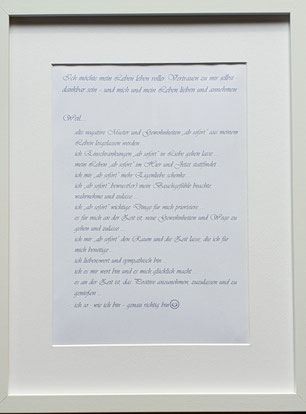 Ich möchte mein Leben leben voller Vertrauen zu mir selbst -
dankbar sein - und mich und mein Leben lieben und annehmen
Weil...
alte negative Muster und Gewohnheiten „ab sofort" aus meinem
Leben losgelassen werden
ich Einschränkungen „ab sofort" in Liebe gehen lasse ...
mein Leben „ab sofort" im Hier und Jetzt stattfindet ...
ich mir „ab sofort" mehr Eigenliebe schenke
ich „ab sofort" bewusst(er) mein Bauchgefühl beachte,
wahrnehme und zulasse ...
ich „ab sofort" wichtige Dinge für mich priorisiere ...
es für mich an der Zeit ist, neue Gewohnheiten und Wege zu
gehen und zulasse ...
ich mir „ab sofort" den Raum und die Zeit lasse, die ich für
mich benötige
ich liebenswert und sympathisch bin ...
ich es mir wert bin und es mich glücklich macht
es an der Zeit ist, das Positive anzunehmen, zuzulassen und zu
genießen ...
ich so - wie ich bin - genau richtig bin